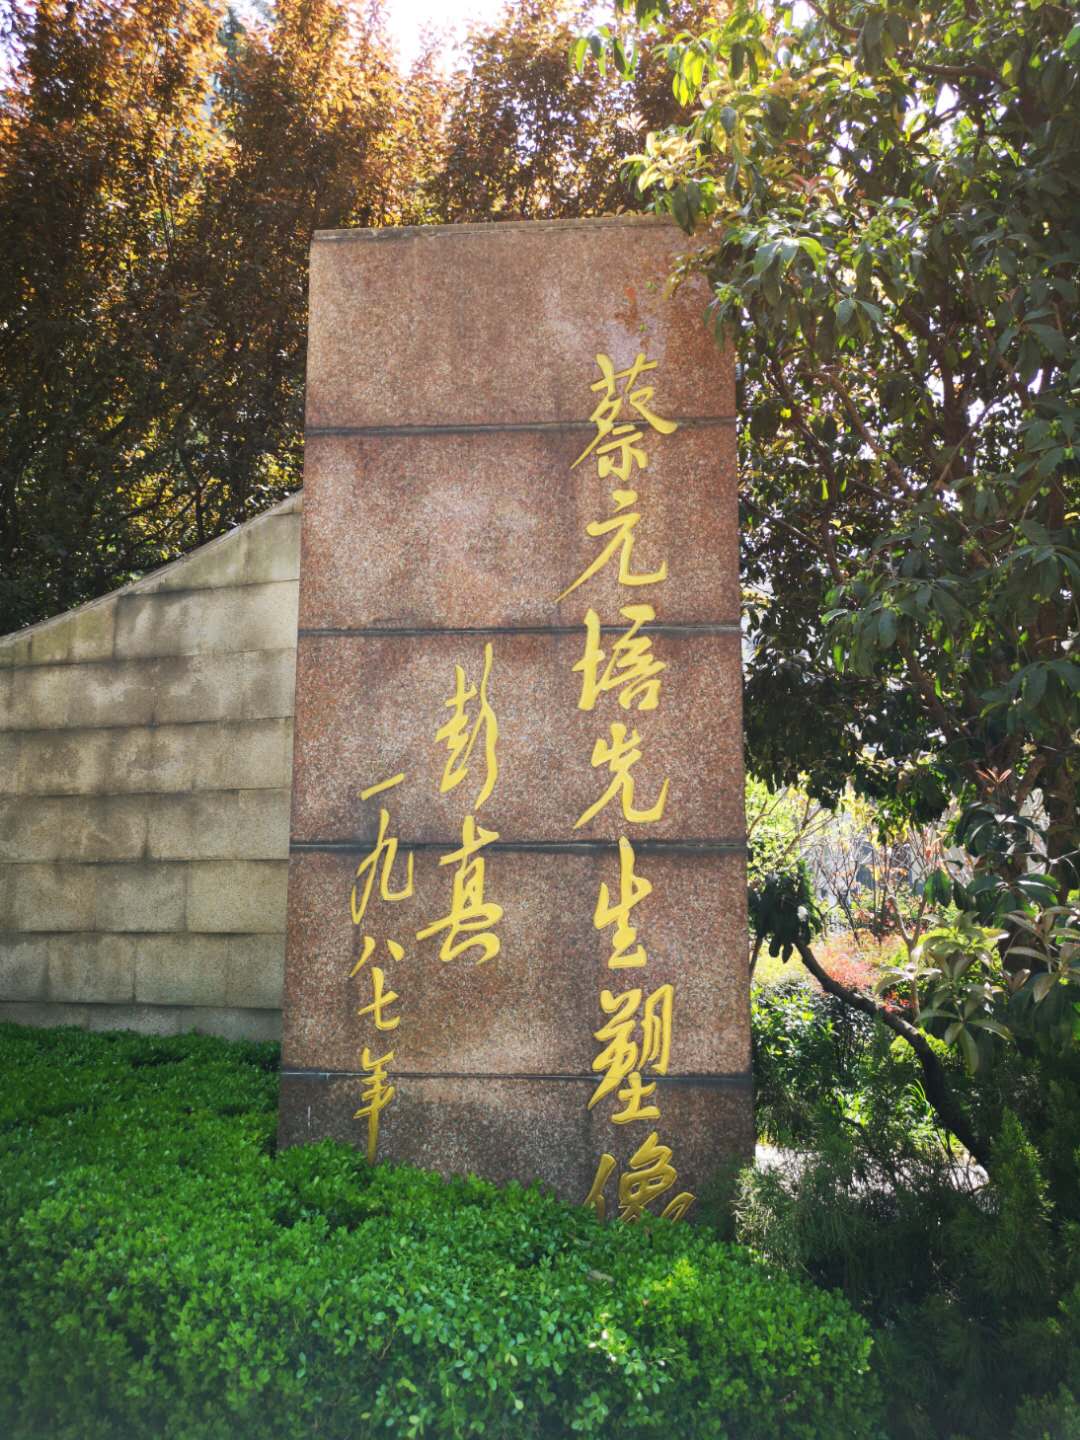 蔡元培先生塑像
彭真
一九八七年